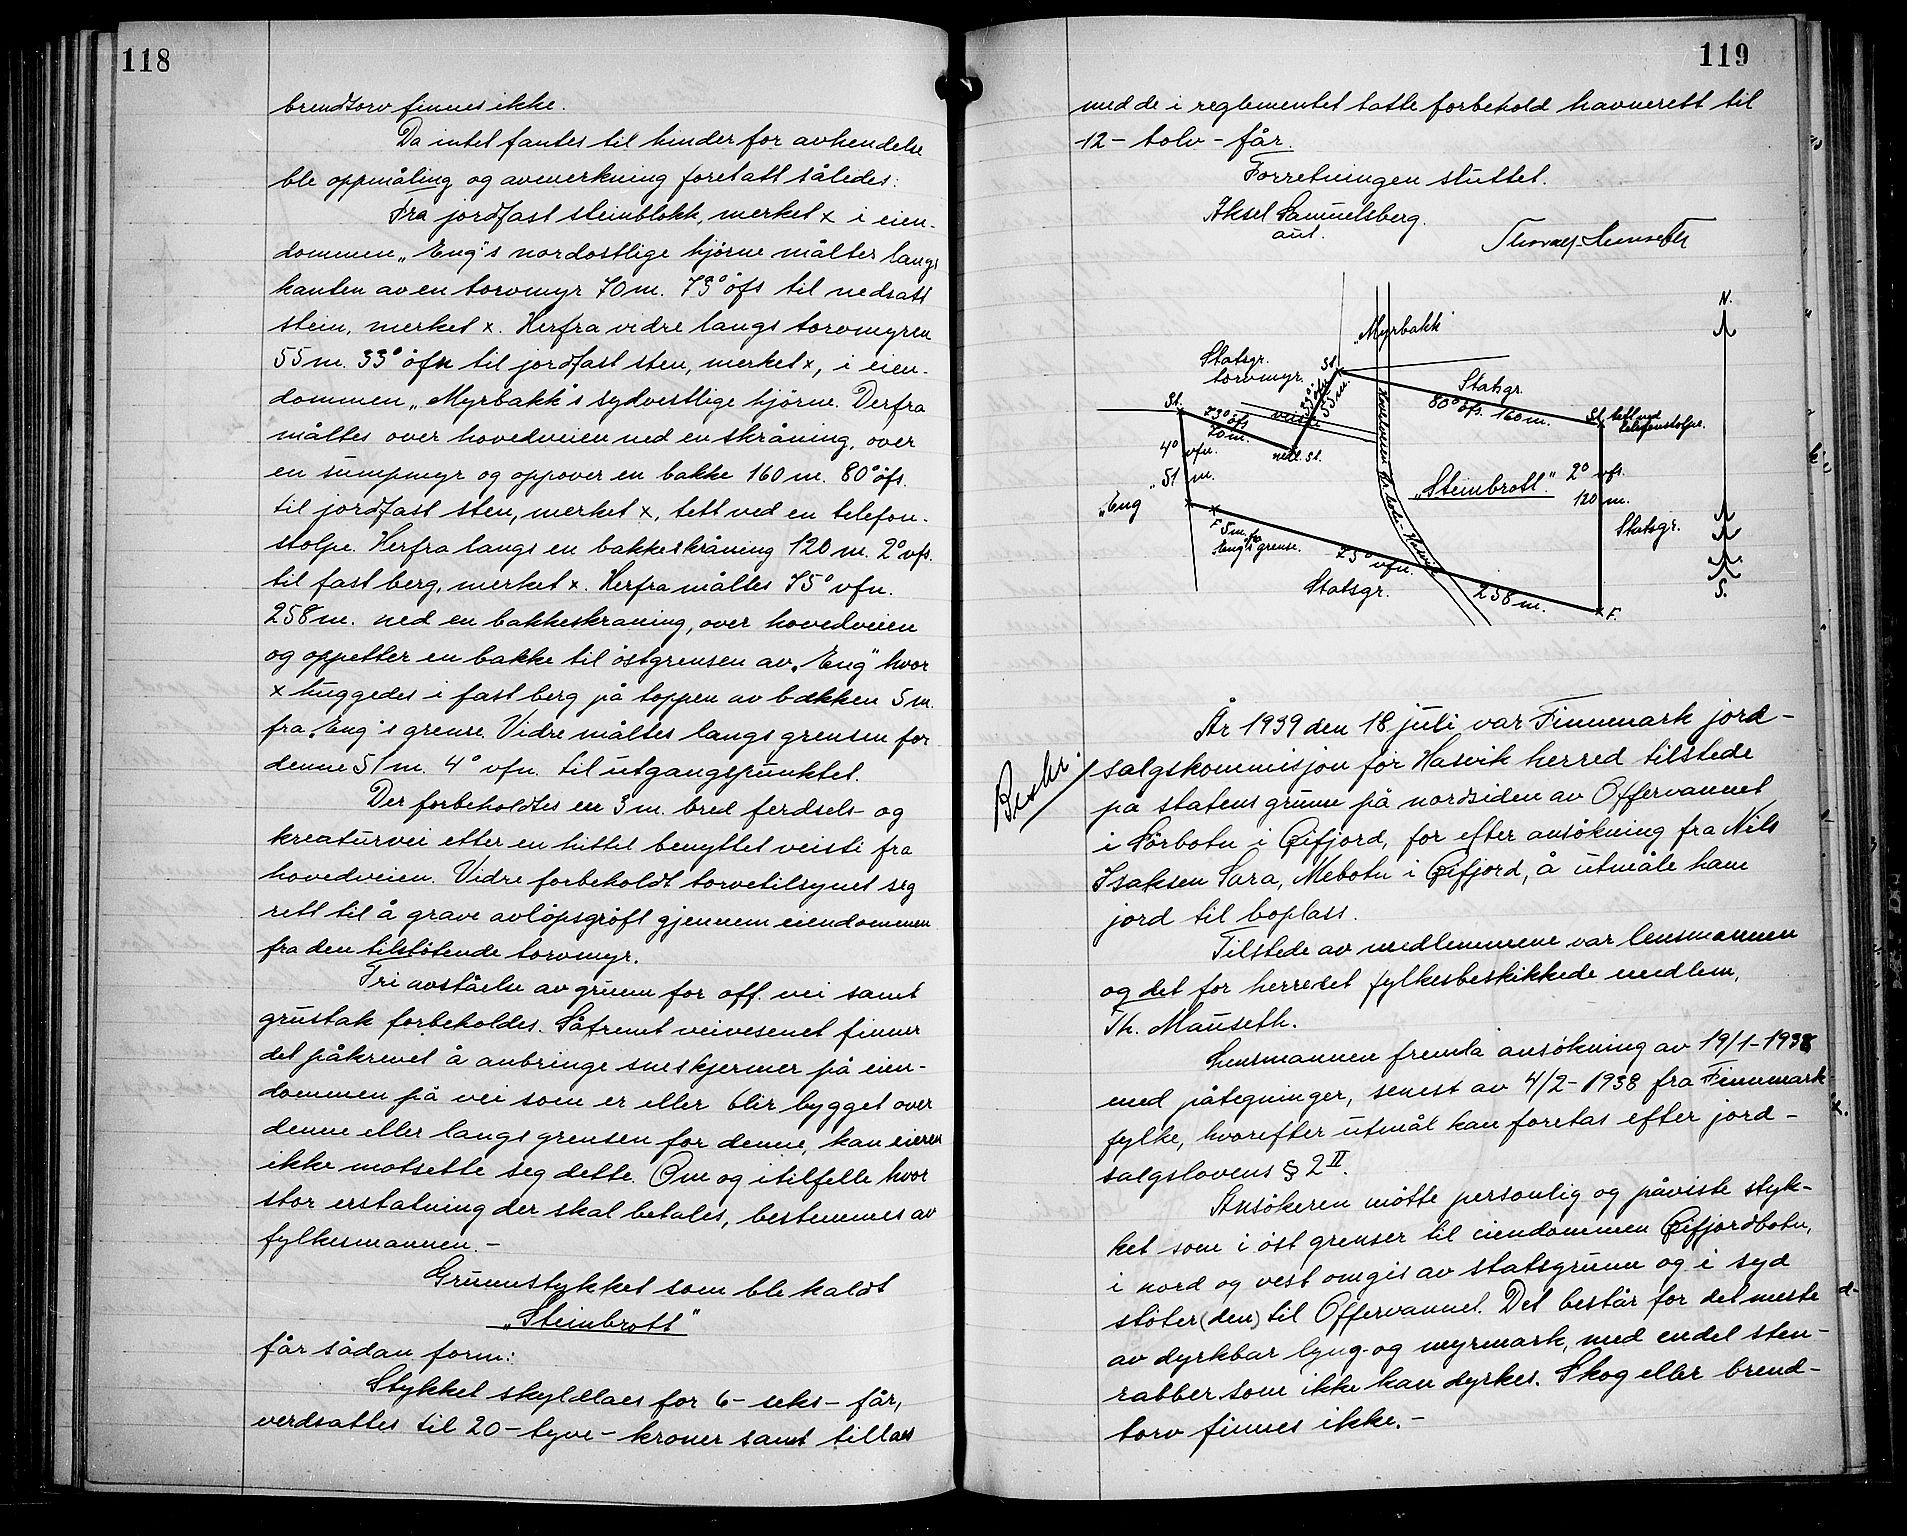 118
brendtorv finnes ikke.
Da intet fantes til hinder for avhendelse
ble oppmåling og avmerkning foretatt således:
Fra jordfast steinblokk, merket x i eien-
dommen „Eng"s nordostlige hjørne måltes langs
kanten av en torvmyr 70 m. 73° öfs til nedsatt
stein, merket x. Herfra vidre langs torvmyren
55 m. 33° öfn til jordfast sten, merket x, i eien-
dommen „Myrbakk"s sydvestlige hjörne. Derfra
måltes over hovedveien ned en skråning, over
en sumpmyr og oppover en bakke 160 m. 80° öfs.
til jordfast sten, merket x, tett ved en telefon-
stolpe. Herfra langs en bakkeskråning 120 m. 2° vfs.
til fast berg, merket x. Herfra måltes 75° vfn.
258 m. ned en bakkeskraning, over hovedveien
og oppetter en bakke til östgrensen av „Eng" hvor
x huggedes i fast berg på toppen av bakken 5 m.
fra „Eng"s grense. Vidre måltes langs grensen for
denne 51 m. 4° vfn. til utgangspunktet.
Der forbeholdtes en 3 m. bred ferdsels- og
kreaturvei etter en hittil benyttet veisti fra
hovedveien. Vidre forbeholdt torvetilsynet seg
rett til å grave avlöpsgröft gjennem eiendommen
fra den tilstötende torvmyr.
Fri avståelse av grunn for off. vei samt
grustak forbeholdes. Såfremt veivesenet finner
det påkrevet å anbringe sneskjermer på eien-
dommen på vei som er eller blir bygget over
denne eller langs grensen for denne, kan eieren
ikke motsette seg dette. Om og i tilfelle hvor
stor erstatning der skal betales, bestemmes av
fylkesmannen.-
Grunnstykket som ble kaldt
„Steinbrott"
får sådan form:
Stykket skyldlaes for 6 - seks - får,
verdsattes til 20 - tyve - kroner samt tillaes
119
med de i reglementet tatte forbehold havnerett til
12 - tolv - får.
Forretningen sluttet.
Aksel Samuelsberg.
aut.
N.
„Myrbakk"
Statsgr.
torvmyr.
St.
Statsgr.
80° öfs. 160 m.
St. tett ved
telefonstolpe.
33° öfn
55 m.
veisti
St.
73° öfs
70 m.
nedl. St.
4° vfn.
51 m.
„Eng"
„Steinbrott."
2° vfs.
120 m.
Statsgr.
F
5 m. fra
Eng's grense.
75° vfn.
258 m.
Statsgr.
F.
S.
År 1939 den 18 juli var Finnmark jord-
salgskommisjon for Hasvik herred tilstede
på statens grunn på nordsiden av Offervannet
i Sörbotn i Öifjord, for efter ansökning fra Nils
Isaksen Sara, Mebotn i Öifjord, å utmåle ham
jord til boplass.
Tilstede av medlemmene var lensmannen
og det for herredet fylkesbeskikkede medlem,
Th. Mauseth.
Lensmannen fremla ansökning av 19/1-1938
med påtegninger, senest av 4/2-1938 fra Finnmark
fylke, hvorefter utmål kan foretas efter jord-
salgslovens § 2 II.
Ansökeren mötte personlig og påviste styk-
ket som i öst grenser til eiendommen Öifjordbotn,
i nord og vest omgis av statsgrunn og i syd
stöter (den) til Offervannet. Det består for det meste
av dyrkbar lyng- og myrmark, med endel sten-
rabber som ikke kan dyrkes. Skog eller brend-
torv finnes ikke.-